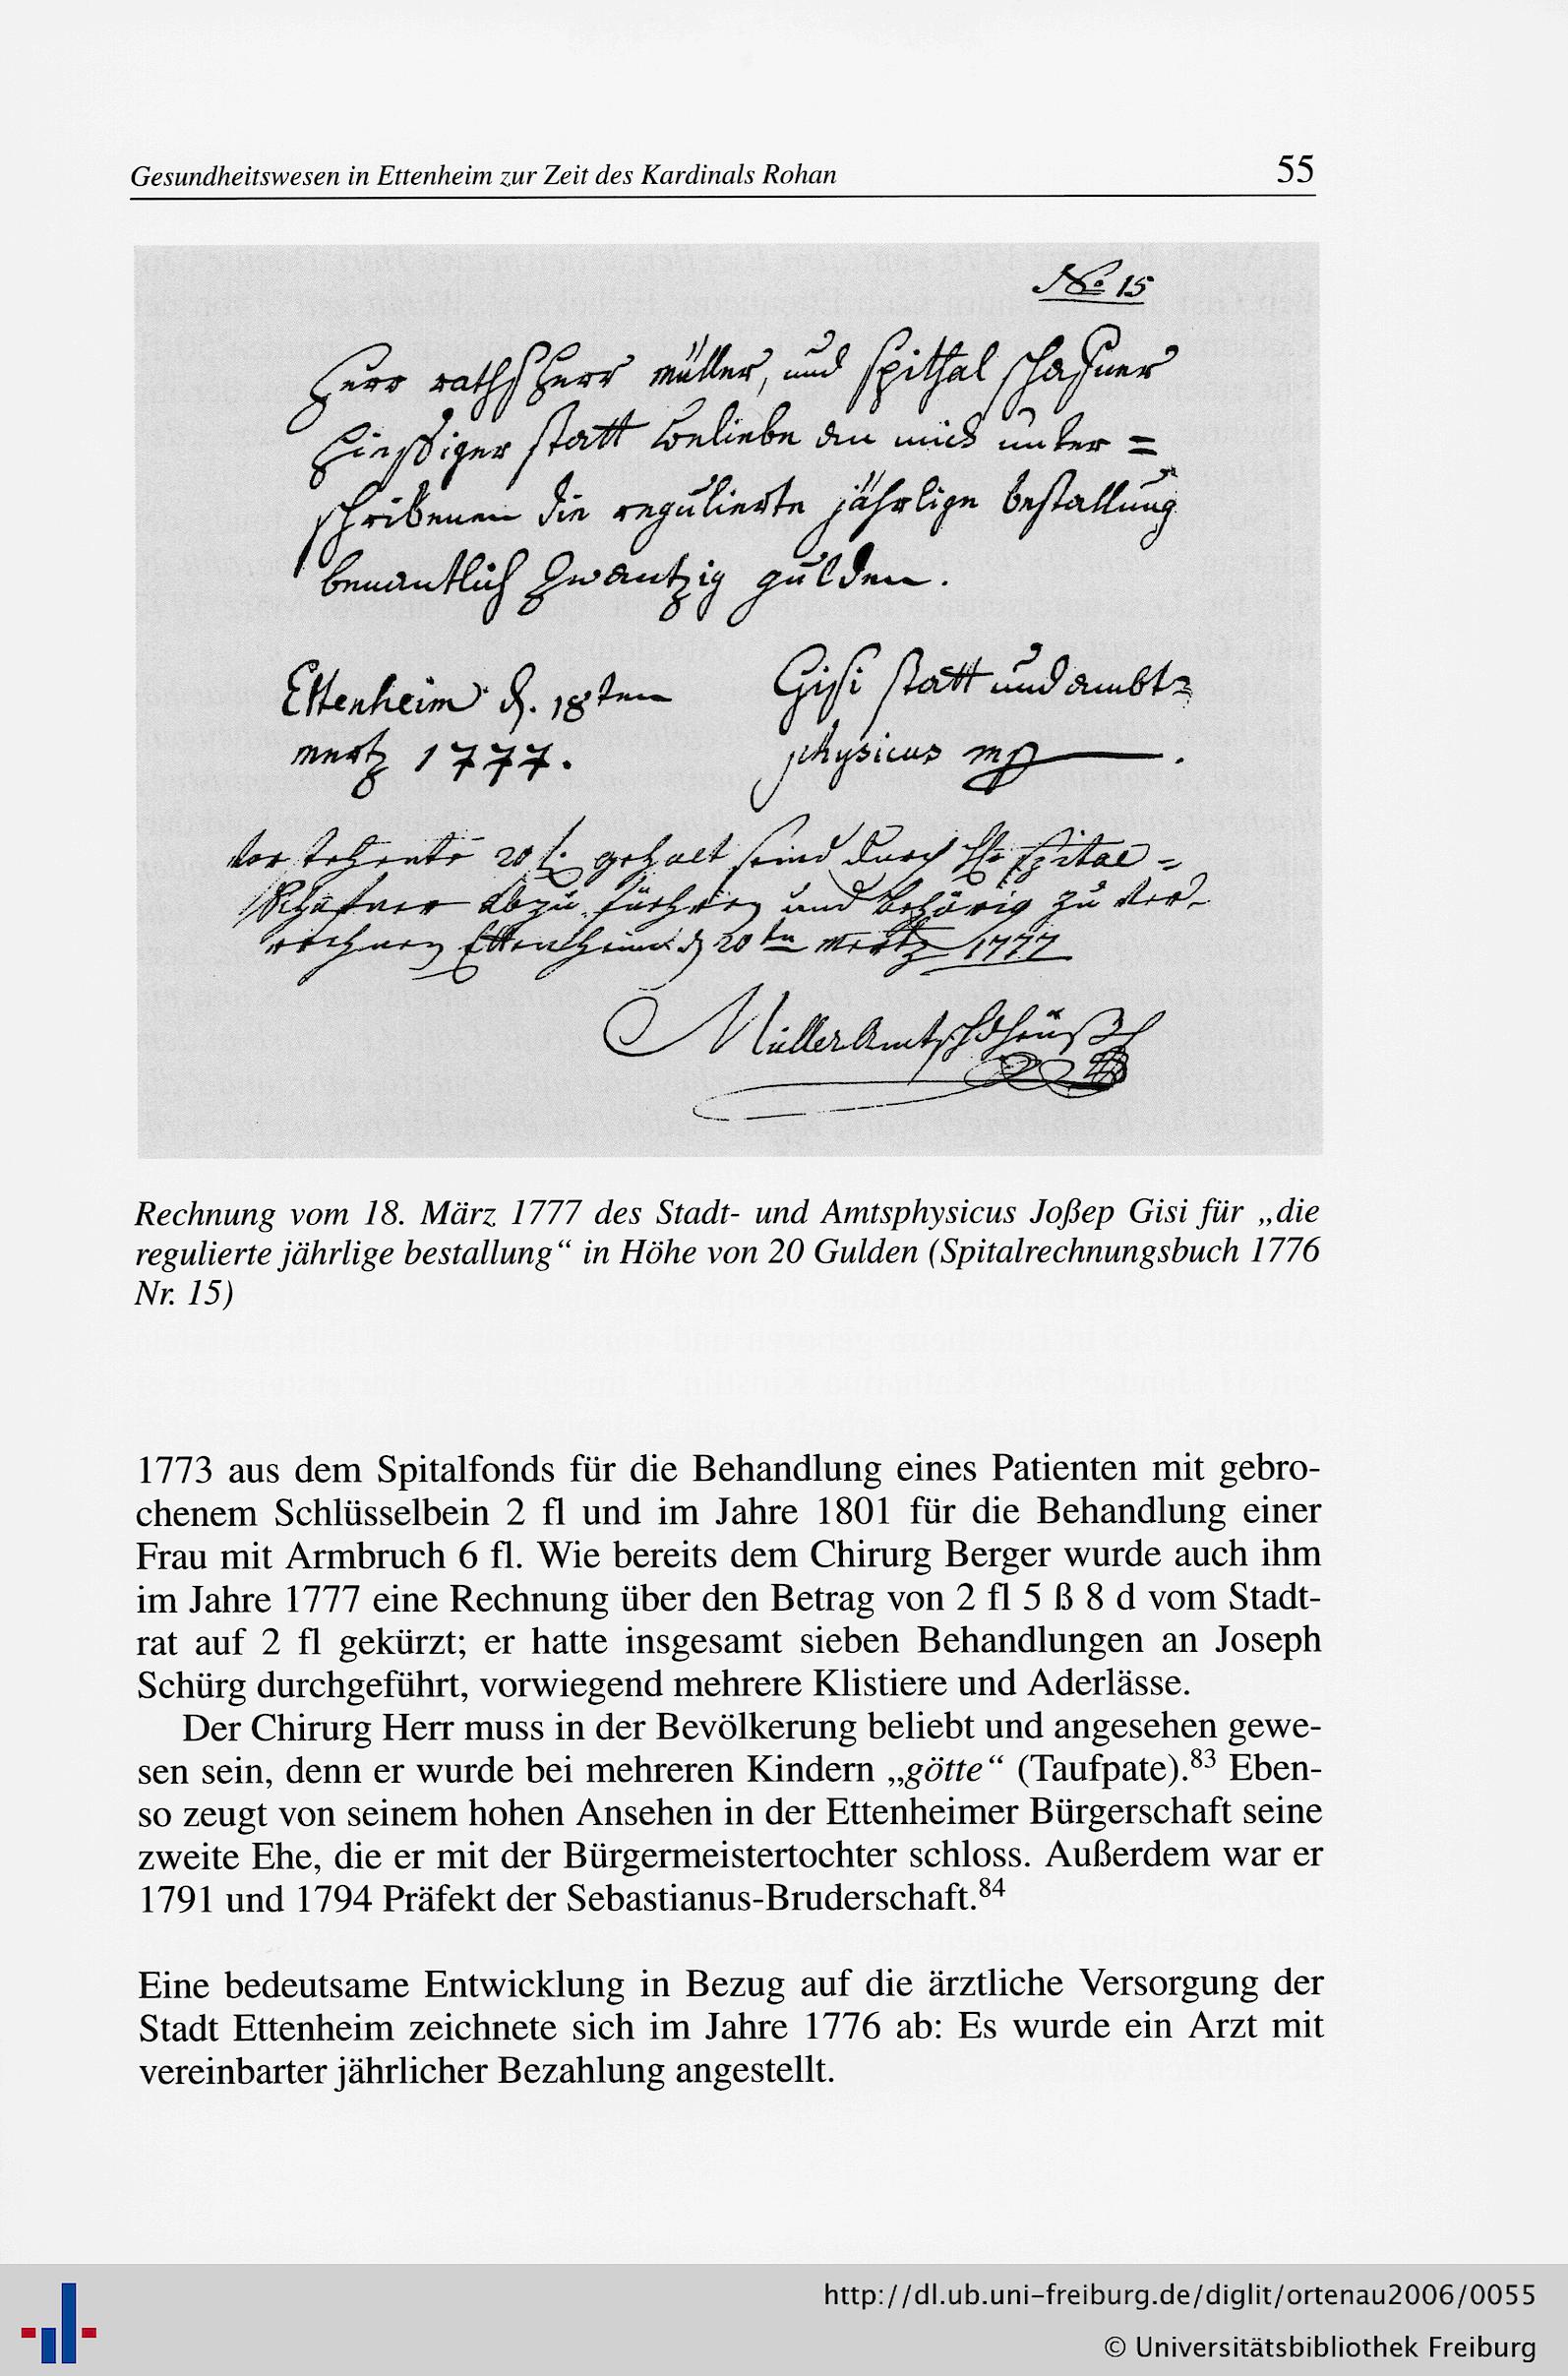 Gesundheitswesen in Ettenheim zur Zeit des Kardinals Rohan 55
No 15
Herr rathsherr müller, und spithal schafner
hiessiger statt beliebe an mich unter =
schribenen die regulierte jährlige bestallung
benantlich zwantzig gulden.
Ettenheim d. 18ten
mertz 1777.
Gisi statt und ambt=
physicus mp.
vor stehente 20 f. gehalt seind durch spital =
schafner abzu füehren und behörig zu ver-
rechnen Ettenheim d 20tn mertz 1777
Müller
Rechnung vom 18. März 1777 des Stadt- und Amtsphysicus Joßep Gisi für „die
regulierte jährlige bestallung“ in Höhe von 20 Gulden (Spitalrechnungsbuch 1776
Nr. 15)
1773 aus dem Spitalfonds für die Behandlung eines Patienten mit gebro-
chenem Schlüsselbein 2 fl und im Jahre 1801 für die Behandlung einer
Frau mit Armbruch 6 fl. Wie bereits dem Chirurg Berger wurde auch ihm
im Jahre 1777 eine Rechnung über den Betrag von 2 fl 5 ß 8 d vom Stadt-
rat auf 2 fl gekürzt; er hatte insgesamt sieben Behandlungen an Joseph
Schürg durchgeführt, vorwiegend mehrere Klistiere und Aderlässe.
Der Chirurg Herr muss in der Bevölkerung beliebt und angesehen gewe-
sen sein, denn er wurde bei mehreren Kindern „götte“ (Taufpate).83 Eben-
so zeugt von seinem hohen Ansehen in der Ettenheimer Bürgerschaft seine
zweite Ehe, die er mit der Bürgermeistertochter schloss. Außerdem war er
1791 und 1794 Präfekt der Sebastianus-Bruderschaft.84
Eine bedeutsame Entwicklung in Bezug auf die ärztliche Versorgung der
Stadt Ettenheim zeichnete sich im Jahre 1776 ab: Es wurde ein Arzt mit
vereinbarter jährlicher Bezahlung angestellt.
http://dl.ub.uni-freiburg.de/diglit/ortenau2006/0055
© Universitätsbibliothek Freiburg